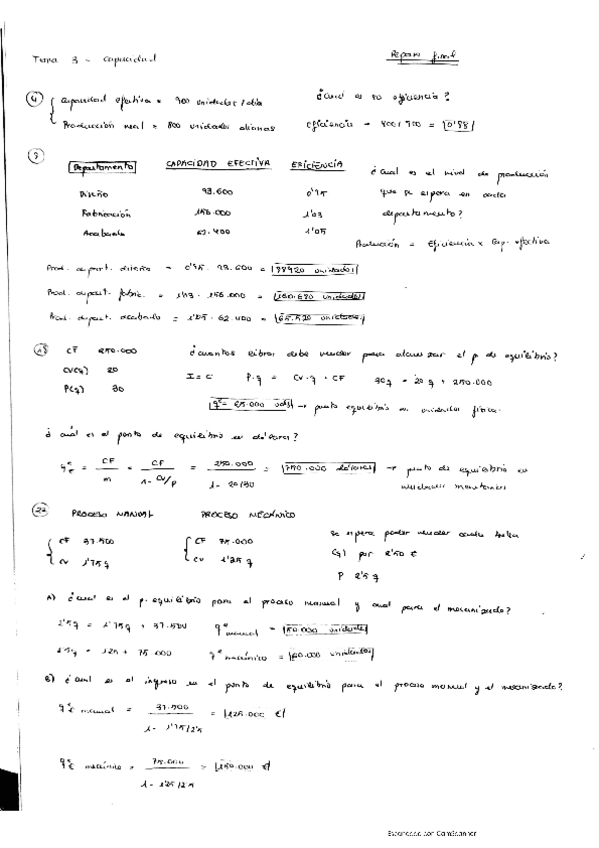 Tema 3 - Capacidad
Repaso final
4 Capacidad efectiva = 900 unidades/día ¿Cuál es su eficiencia?
Producción real = 800 unidades diarias eficiencia = 800/900 = 0'88
Departamento CAPACIDAD EFECTIVA EFICIENCIA ¿Cuál es el nivel de producción
Diseño 93.600 0'95 que se espera en cada
Fabricación 156.000 1'03 departamento?
Acabado 62.400 1'05
Producción = Eficiencia x Cap. efectiva
Prod. depart. diseño = 0'95 · 93.600 = 88920 unidades
Prod. depart. fabric. = 1'03 · 156.000 = 160.680 unidades
Prod. depart. acabado = 1'05 · 62.400 = 65.520 unidades
CF 250.000 ¿Cuántos libros debe vender para alcanzar el p. de equilibrio?
CV(q) 20 I = C P·q = CV·q + CF 30q = 20q + 250.000
P(q) 30
qe = 25.000 uds → punto equilibrio en unidades físicas
¿Cuál es el punto de equilibrio en dólares?
qe = CF/m = CF/1-CV/p = 250.000/1-20/30 = 750.000 dólares → punto de equilibrio en
unidades monetarias
22 PROCESO MANUAL PROCESO MECÁNICO
CF 37.500 CF 75.000 Se espera poder vender cada
CV 1'75q CV 1'25q (q) por 2'50 €
P 2'5q
A) ¿Cuál es el p. equilibrio para el proceso manual y cual para el mecanizado?
2'5q = 1'75q + 37.500 qe manual = 50.000 unidades
75 000 qe mecánico = 60.000 unidades
B) ¿Cuál es el ingreso en el punto de equilibrio para el proceso manual y el mecanizado?
qe manual = 37.500/1-1'75/2'5 = 125.000 €
qe mecánico = 75.000/1-1'25/2'5 = 150.000 €
Escaneado con CamScanner